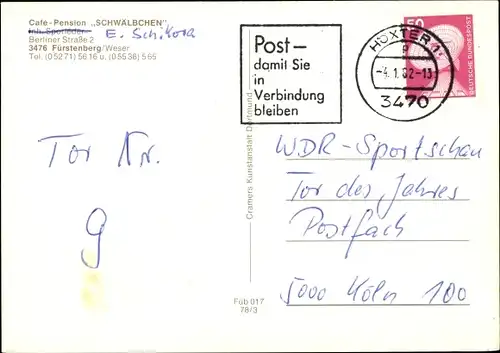 Cafe-Pension „SCHWÄLBCHEN"
Inh. Sporleder E. Schikora
Berliner Straße 2
3476 Fürstenberg/Weser
Tel. (05271) 5616 u. (05536) 565
Post—
damit Sie
in
Verbindung
bleiben
HÖXTER 1
-4.1.82-13
3470
50
DEUTSCHE BUNDESPOST
Tor Nr.
9
Cramers Kunstanstalt Dortmund
Füb 017
78/3
WDR-Sportschau
Tor des Jahres
Postfach
5000 Köln 100